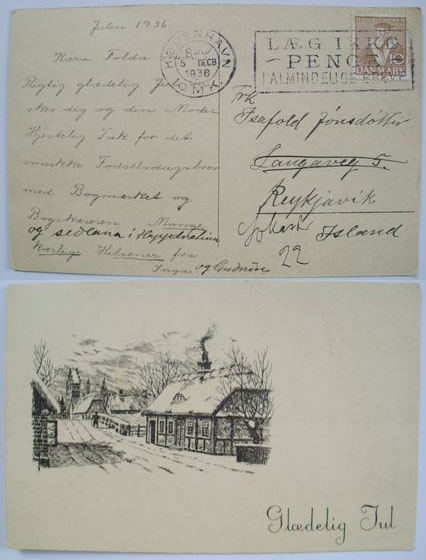 Julen 1936.
Kæra Folda
Rigtig glædelig Jul
sker dig og din Moder
Hjertelig Tak for det
smukke Fødselsdagsbrev
med Bogmærket og
Bogskæreren. Mange
og sedlana i
kærlige Hilsener fra
Inga og
KØBENHAVN
5 DECB
1936
OMK.
LÆG IKKE
PENGE
I ALMINDELIGE
DANMARK
10
Frk
Isafold Jónsdóttir
Laugaveg 5.
Reykjavik
Island
22
Glædelig Jul